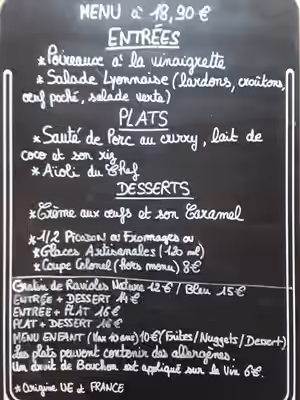 MENU à 18,90€
ENTRÉES
* Poireaux à la vinaigrette
* Salade Lyonnaise (lardons, croûtons,
œuf poché, salade verte)
PLATS
* Sauté de Porc au curry, lait de
coco et son riz
* Aïoli du Chef
DESSERTS
* Crème aux œufs et son Caramel
* 1/2 Picodon ou Fromages ou
* Glaces Artisanales (120 ml)
* Coupe Colonel (Hors menu) 8€
Gratin de Ravioles Nature 12€ / Bleu 15€
ENTRÉE + DESSERT 14€
ENTREE + PLAT 16€
PLAT + DESSERT 16€
MENU ENFANT (Max 10 ans) 10€ (Frites/Nuggets/Dessert)
Les plats peuvent contenir des allergènes.
Un droit de Bouchon est appliqué sur le Vin 6€.
* Origine UE et FRANCE